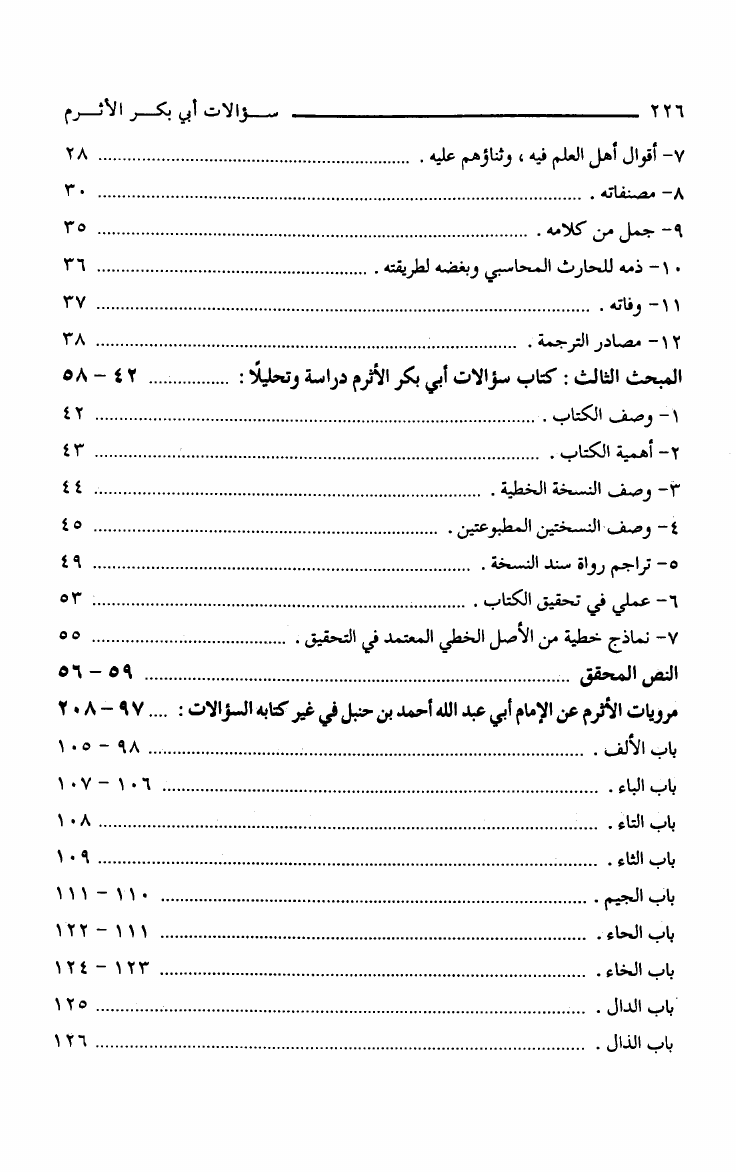 ٢٢٦ ـــــــــــــــــــــــــــــ ســؤالات أبي بكــر الأثــرم
٧- أقوال أهل العلم فيه ، وثناؤهم عليه . ........ ٢٨
٨- مصنفاته . ........ ٣٠
٩- جمل من كلامه . ........ ٣٥
١٠- ذمه للحارث المحاسبي وبغضه لطريقته . ........ ٣٦
١١- وفاته . ........ ٣٧
١٢- مصادر الترجمة . ........ ٣٨
المبحث الثالث : كتاب سؤالات أبي بكر الأثرم دراسة وتحليلًا : ........ ٤٢ – ٥٨
١- وصف الكتاب . ........ ٤٢
٢- أهمية الكتاب . ........ ٤٣
٣- وصف النسخة الخطية . ........ ٤٤
٤- وصف النسختين المطبوعتين . ........ ٤٥
٥- تراجم رواة سند النسخة . ........ ٤٩
٦- عملي في تحقيق الكتاب . ........ ٥٣
٧- نماذج خطية من الأصل الخطي المعتمد في التحقيق . ........ ٥٥
النص المحقق ........ ٥٩ – ٥٦
مرويات الأثرم عن الإمام أبي عبد الله أحمد بن حنبل في غير كتابه السؤالات : .... ٩٧ – ٢٠٨
باب الألف . ........ ٩٨ – ١٠٥
باب الباء . ........ ١٠٦ – ١٠٧
باب التاء . ........ ١٠٨
باب الثاء . ........ ١٠٩
باب الجيم . ........ ١١٠ – ١١١
باب الحاء . ........ ١١١ – ١٢٢
باب الخاء . ........ ١٢٣ – ١٢٤
باب الدال . ........ ١٢٥
باب الذال . ........ ١٢٦